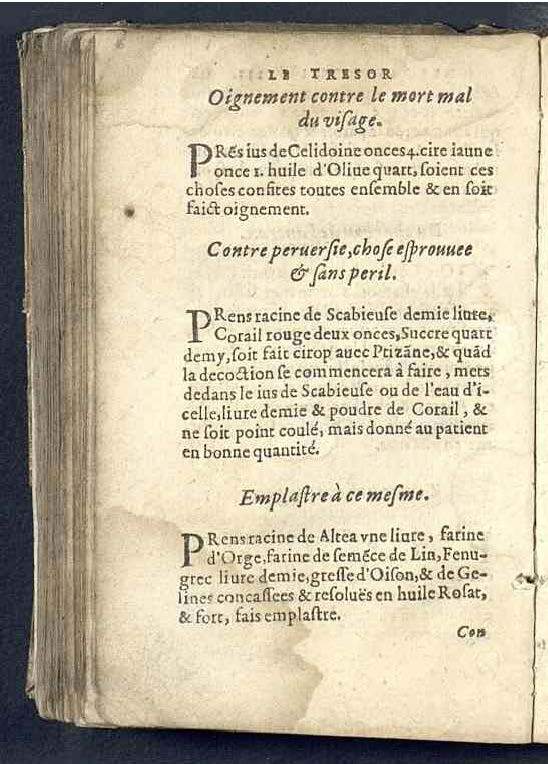 LE TRESOR
Oignement contre le mort mal
du viſage.
PRẽs ius de Celidoine onces 4. cire iaune
once 1. huile d'Oliue quart, ſoient ces
choſes confites toutes enſemble & en ſoit
faict oignement.
Contre peruerſie, choſe eſprouuee
& ſans peril.
PRens racine de Scabieuſe demie liure,
Corail rouge deux onces, Succre quart
demy, ſoit fait cirop auec Ptizāne, & quād
la decoction ſe commencera à faire, mets
dedans le ius de Scabieuſe ou de l'eau d'i-
celle, liure demie & poudre de Corail, &
ne ſoit point coulé, mais donné au patient
en bonne quantité.
Emplaſtre à ce meſme.
PRens racine de Altea vne liure, farine
d'Orge, farine de ſemēce de Lin, Fenu-
grec liure demie, greſſe d'Oiſon, & de Ge-
lines concaſſees & reſoluës en huile Roſat,
& fort, fais emplaſtre.
Con